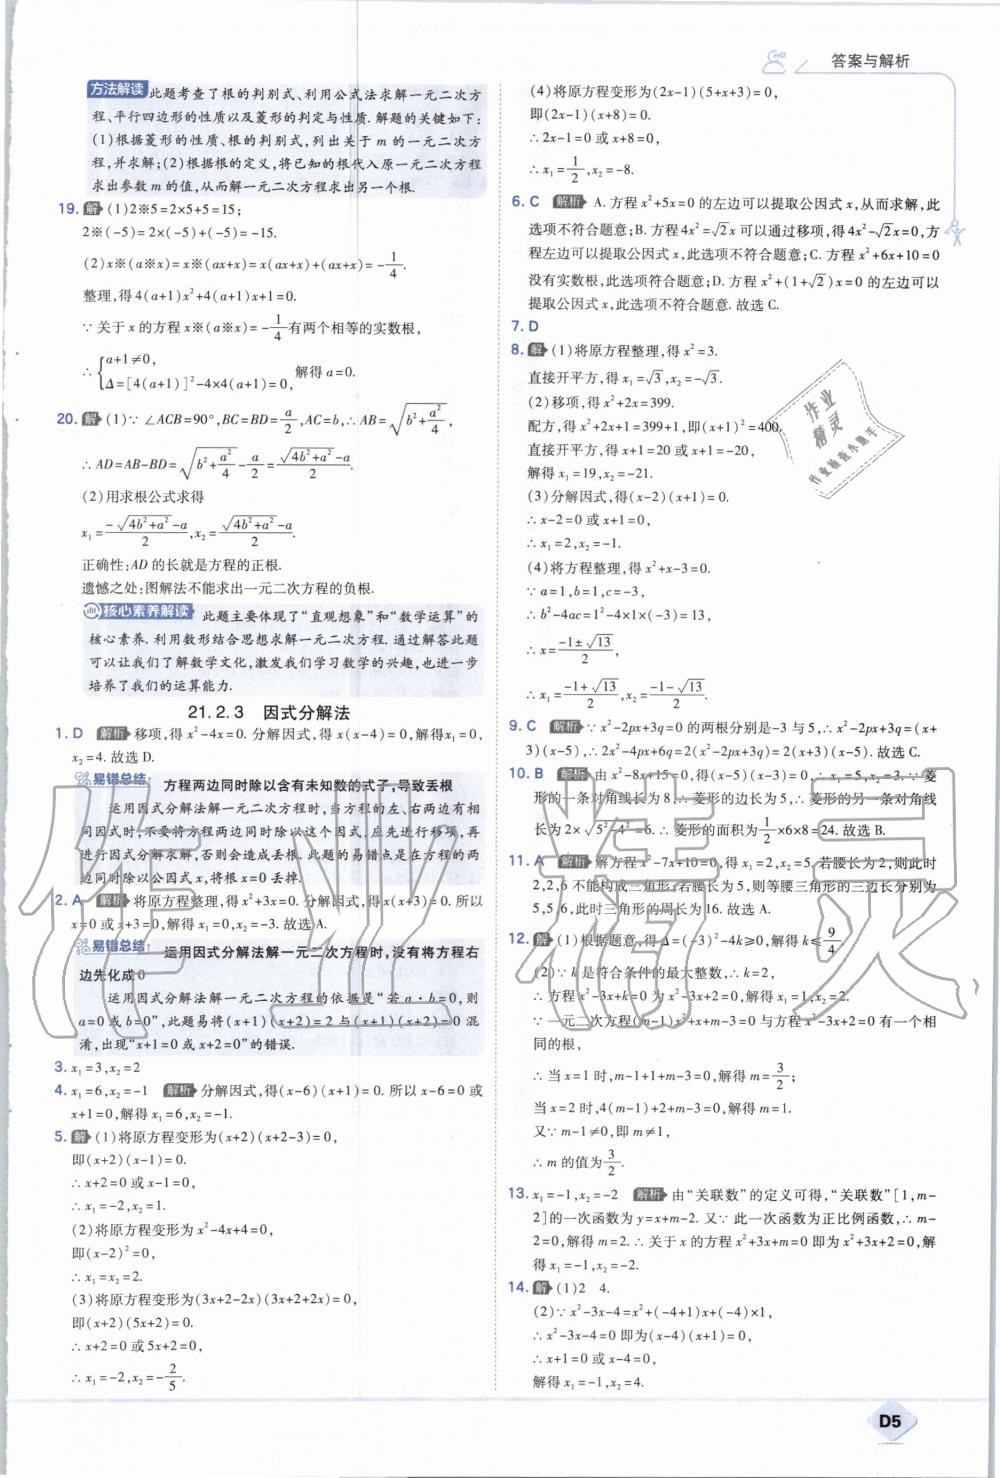 答案与解析
方法解读 此题考查了根的判别式、利用公式法求解一元二次方
程、平行四边形的性质以及菱形的判定与性质. 解题的关键如下:
(1)根据菱形的性质、根的判别式,列出关于 m 的一元二次方
程,并求解;(2)根据根的定义,将已知的根代入原一元二次方程
求出参数 m 的值,从而解一元二次方程求出另一个根.
19. 解 (1)2※5=2×5+5=15;
2※(-5)=2×(-5)+(-5)=-15.
(2)x※(a※x)=x※(ax+x)=x(ax+x)+(ax+x)=-1/4.
整理,得 4(a+1)x²+4(a+1)x+1=0.
∵关于 x 的方程 x※(a※x)=-1/4有两个相等的实数根,
∴{a+1≠0,
Δ=[4(a+1)]²-4×4(a+1)=0, 解得 a=0.
20. 解 (1)∵∠ACB=90°,BC=BD=a/2,AC=b,∴AB=√(b²+a²/4),
∴AD=AB-BD=√(b²+a²/4)-a/2=(√(4b²+a²)-a)/2.
(2)用求根公式求得
x₁=(-√(4b²+a²)-a)/2,x₂=(√(4b²+a²)-a)/2.
正确性:AD 的长就是方程的正根.
遗憾之处:图解法不能求出一元二次方程的负根.
核心素养解读 此题主要体现了“直观想象”和“数学运算”的
核心素养. 利用数形结合思想求解一元二次方程. 通过解答此题
可以让我们了解数学文化,激发我们学习数学的兴趣,也进一步
培养了我们的运算能力.
21.2.3 因式分解法
1. D 解析 移项,得 x²-4x=0. 分解因式,得 x(x-4)=0,解得x₁=0,
x₂=4. 故选 D.
易错总结 方程两边同时除以含有未知数的式子,导致丢根
运用因式分解法解一元二次方程时,当方程的左、右两边有相
同因式时,不要将方程两边同时除以这个因式,应先进行移项,再
进行因式分解求解,否则会造成丢根. 此题的易错点是在方程的两
边同时除以公因式 x,将根 x=0 丢掉.
2. A 解析 将原方程整理,得 x²+3x=0. 分解因式,得 x(x+3)=0. 所以
x=0 或 x+3=0,解得 x₁=0,x₂=-3. 故选 A.
易错总结 运用因式分解法解一元二次方程时,没有将方程右
边先化成 0
运用因式分解法解一元二次方程的依据是“若 a·b=0,则
a=0 或 b=0”,此题易将(x+1)(x+2)=2 与(x+1)(x+2)=0 混
淆,出现“x+1=0 或 x+2=0”的错误.
3. x₁=3,x₂=2
4. x₁=6,x₂=-1 解析 分解因式,得(x-6)(x+1)=0. 所以 x-6=0 或
x+1=0,解得 x₁=6,x₂=-1.
5. 解 (1)将原方程变形为(x+2)(x+2-3)=0,
即(x+2)(x-1)=0.
∴x+2=0 或 x-1=0,
∴x₁=-2,x₂=1.
(2)将原方程变形为 x²-4x+4=0,
即(x-2)²=0.
∴x₁=x₂=2.
(3)将原方程变形为(3x+2-2x)(3x+2+2x)=0,
即(x+2)(5x+2)=0.
∴x+2=0 或 5x+2=0,
∴x₁=-2,x₂=-2/5.
(4)将原方程变形为(2x-1)(5+x+3)=0,
即(2x-1)(x+8)=0.
∴2x-1=0 或 x+8=0,
∴x₁=1/2,x₂=-8.
6. C 解析 A. 方程 x²+5x=0 的左边可以提取公因式 x,从而求解,此
选项不符合题意;B. 方程 4x²=√2x 可以通过移项,得 4x²-√2x=0,方
程左边可以提取公因式 x,此选项不符合题意;C. 方程 x²+6x+10=0
没有实数根,此选项符合题意;D. 方程 x²+(1+√2)x=0 的左边可以
提取公因式 x,此选项不符合题意. 故选 C.
7. D
8. 解 (1)将原方程整理,得 x²=3.
直接开平方,得 x₁=√3,x₂=-√3.
(2)移项,得 x²+2x=399.
配方,得 x²+2x+1=399+1,即(x+1)²=400.
直接开平方,得 x+1=20 或 x+1=-20,
解得 x₁=19,x₂=-21.
(3)分解因式,得(x-2)(x+1)=0.
∴x-2=0 或 x+1=0,
∴x₁=2,x₂=-1.
(4)将方程整理,得 x²+x-3=0.
∵a=1,b=1,c=-3,
∴b²-4ac=1²-4×1×(-3)=13,
∴x=(-1±√13)/2,
∴x₁=(-1+√13)/2,x₂=(-1-√13)/2.
9. C 解析 ∵x²-2px+3q=0 的两根分别是-3 与 5,∴x²-2px+3q=(x+
3)(x-5),∴2x²-4px+6q=2(x²-2px+3q)=2(x+3)(x-5). 故选 C.
10. B 解析 由 x²-8x+15=0,得(x-5)(x-3)=0,∴x₁=5,x₂=3. ∵菱
形的一条对角线长为 8,∴菱形的边长为 5,∴菱形的另一条对角线
长为 2×√(5²-4²)=6. ∴菱形的面积为1/2×6×8=24. 故选 B.
11. A 解析 解方程 x²-7x+10=0,得 x₁=2,x₂=5. 若腰长为 2,则此时
2,2,5 不能构成三角形;若腰长为 5,则等腰三角形的三边长分别为
5,5,6,此时三角形的周长为 16. 故选 A.
12. 解 (1)根据题意,得 Δ=(-3)²-4k≥0,解得 k≤9/4.
(2)∵k 是符合条件的最大整数,∴k=2,
∴方程 x²-3x+k=0 为 x²-3x+2=0,解得 x₁=1,x₂=2.
∵一元二次方程(m-1)x²+x+m-3=0 与方程 x²-3x+2=0 有一个相
同的根,
∴当 x=1 时,m-1+1+m-3=0,解得 m=3/2;
当 x=2 时,4(m-1)+2+m-3=0,解得 m=1.
又∵m-1≠0,即 m≠1,
∴m 的值为3/2.
13. x₁=-1,x₂=-2 解析 由“关联数”的定义可得,“关联数”[1,m-
2]的一次函数为 y=x+m-2. 又∵此一次函数为正比例函数,∴m-
2=0,解得 m=2. ∴关于 x 的方程 x²+3x+m=0 即为 x²+3x+2=0,解
得 x₁=-1,x₂=-2.
14. 解 (1)2 4.
(2)∵x²-3x-4=x²+(-4+1)x+(-4)×1,
∴x²-3x-4=0 即为(x-4)(x+1)=0,
∴x+1=0 或 x-4=0,
解得 x₁=-1,x₂=4.
作业
精灵
作业检查小助手
作业精灵
D5